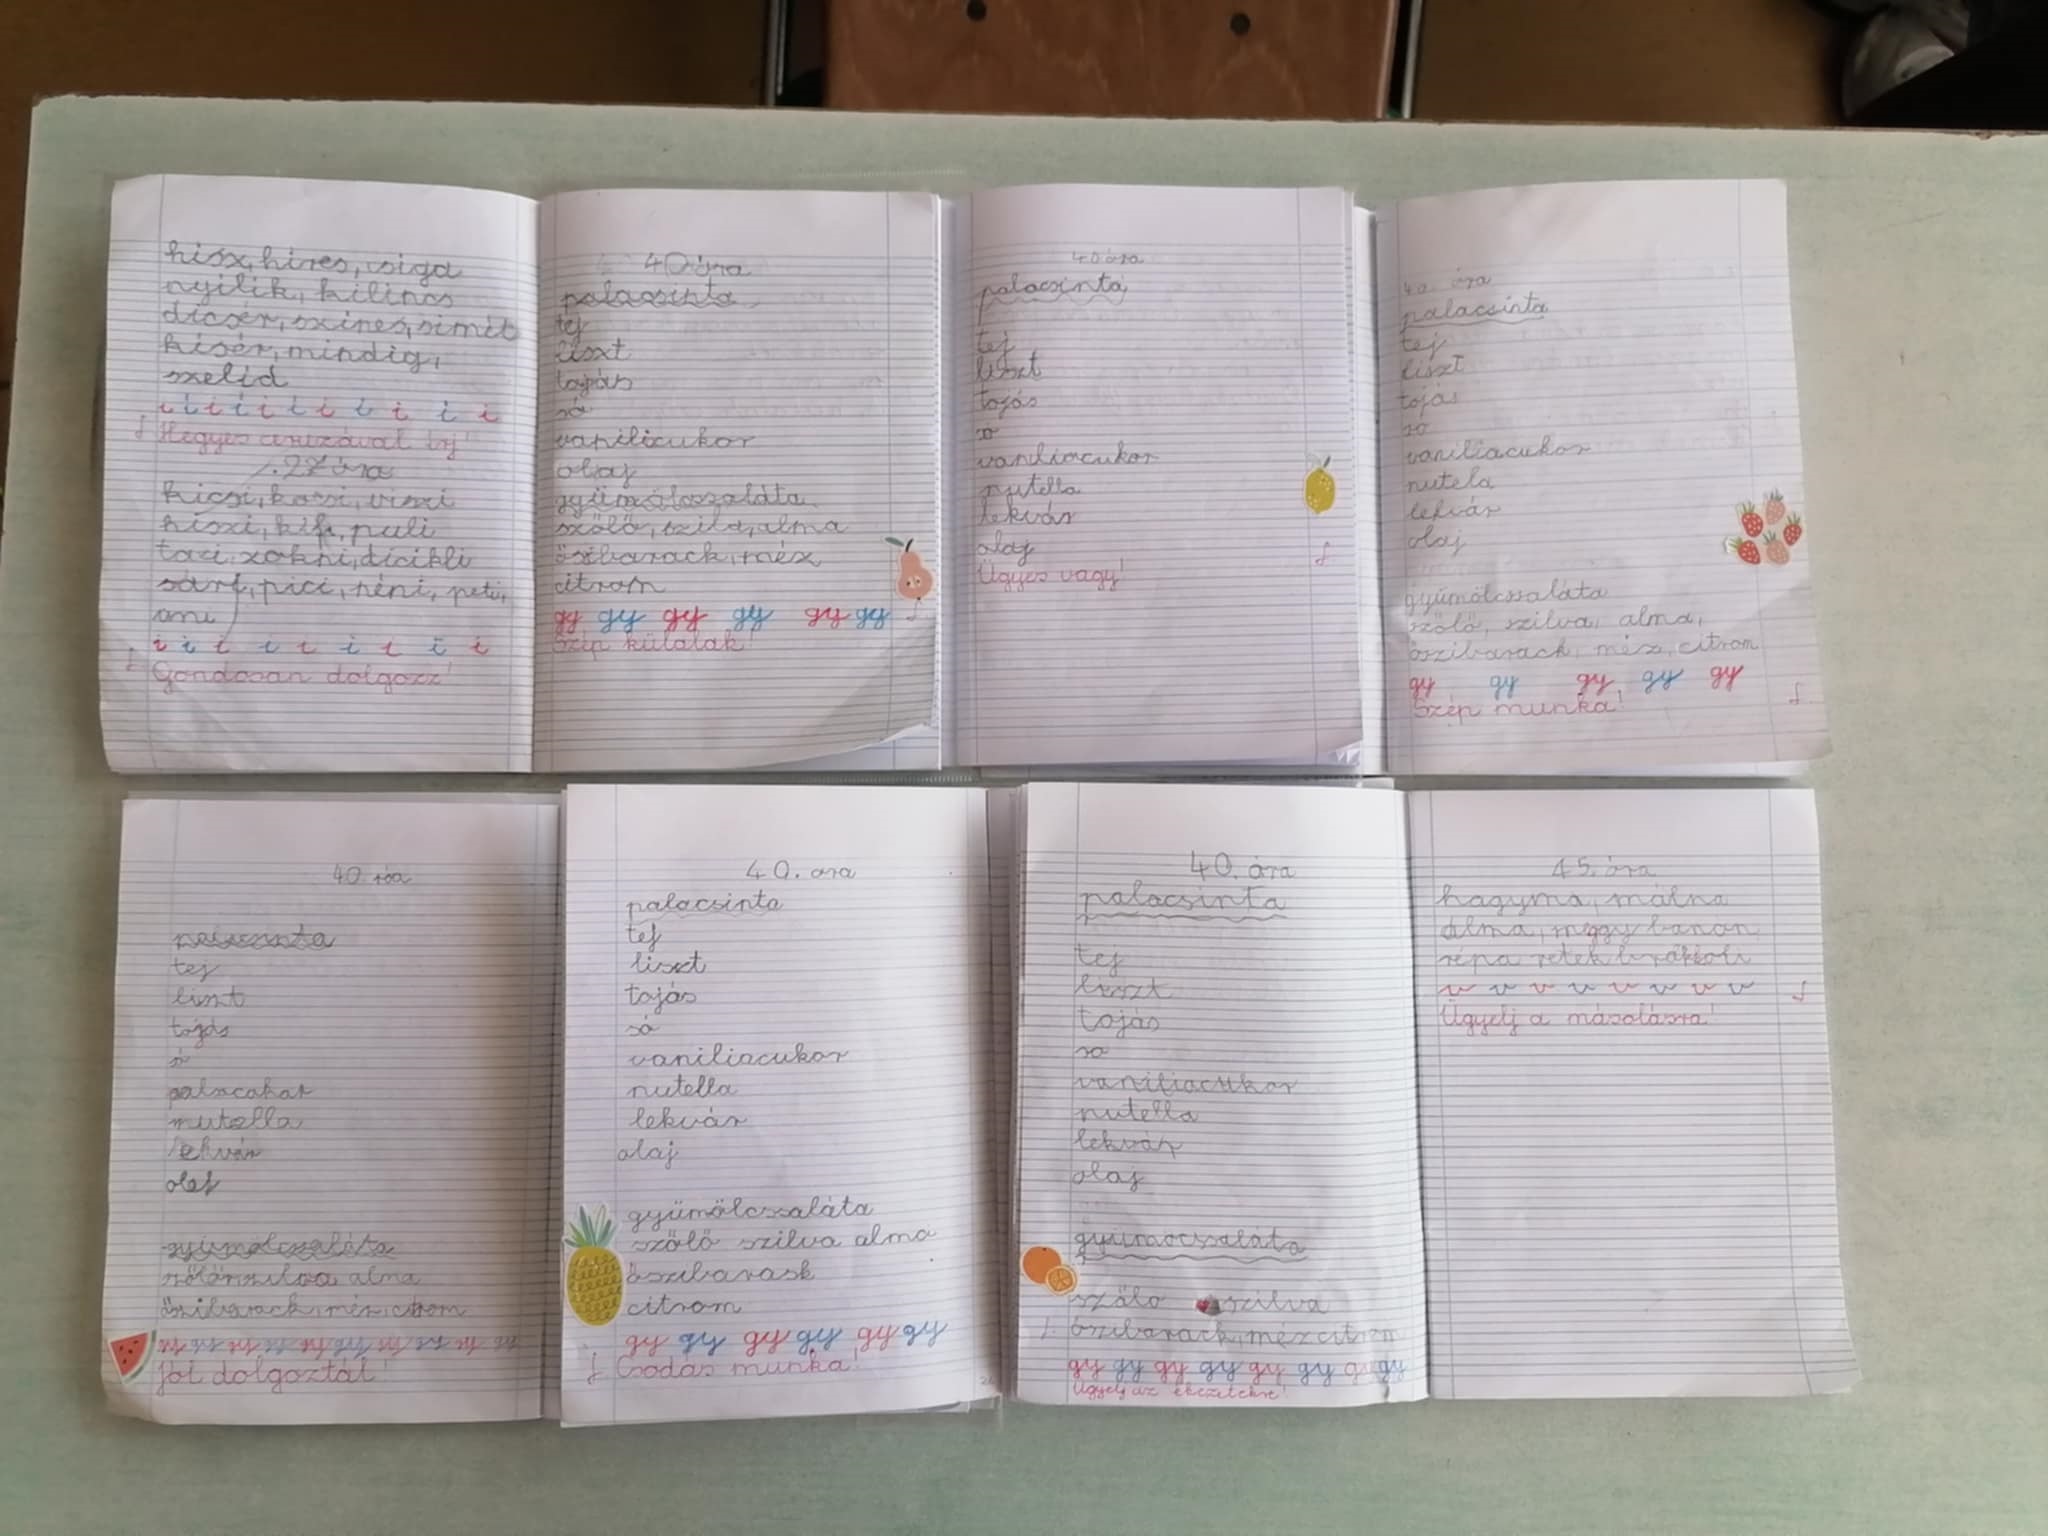 hisz, híres, csiga
nyílik, kilincs
dícsér, színes, simít
kísér, mindig,
szelíd
i i i i i i i i i i i
Hegyes ceruzával írj!
27 óra
kicsi, kocsi, viszi
hiszi, kifi, puli
taxi, zokni, dicikli
sárf, pici, néni, peti,
ami
i i i i i i i i
Gondosan dolgozz!
40 óra
palacsinta
tej
liszt
tojás
só
vanilicukor
olaj
gyümölcssaláta
szőlő, szilva, alma
őszibarack, méz
citrom
gy gy gy gy gy gy
Szép külalak!
40 óra
palacsinta
tej
liszt
tojás
vaniliacukor
nutella
lekvár
olaj
Ügyes vagy!
40. óra
palacsinta
tej
liszt
tojás
so
vaniliacukor
nutela
lekvár
olaj
gyümölcssaláta
szőlő, szilva, alma,
őszibarack, méz, citrom
gy gy gy gy gy
Szép munka!
40. róa
tej
liszt
tojás
nutella
lekvár
olaj
gyümölcssaláta
alma
őszibarack, méz, citrom
gy gy gy gy gy gy gy gy gy gy
Jól dolgoztál!
40. ora
palacsinta
tej
liszt
tojás
só
vaniliacukor
nutella
lekvár
olaj
gyümölcssaláta
szőlő szilva alma
őszibarask
citrom
gy gy gy gy gy gy
Csodás munka!
40. óra
palacsinta
tej
liszt
tojás
so
vaniliacukor
nutella
lekvár
olaj
gyümöcsaláta
szőlo szilva
őszibarack, méz citrom
gy gy gy gy gy gy gy gy
Ügyelj az ékezetekre!
45. óra
hagyma, málna
alma, meggy banan
répa retek brokkoli
v v v v v v v v
Ügyelj a másolásra!